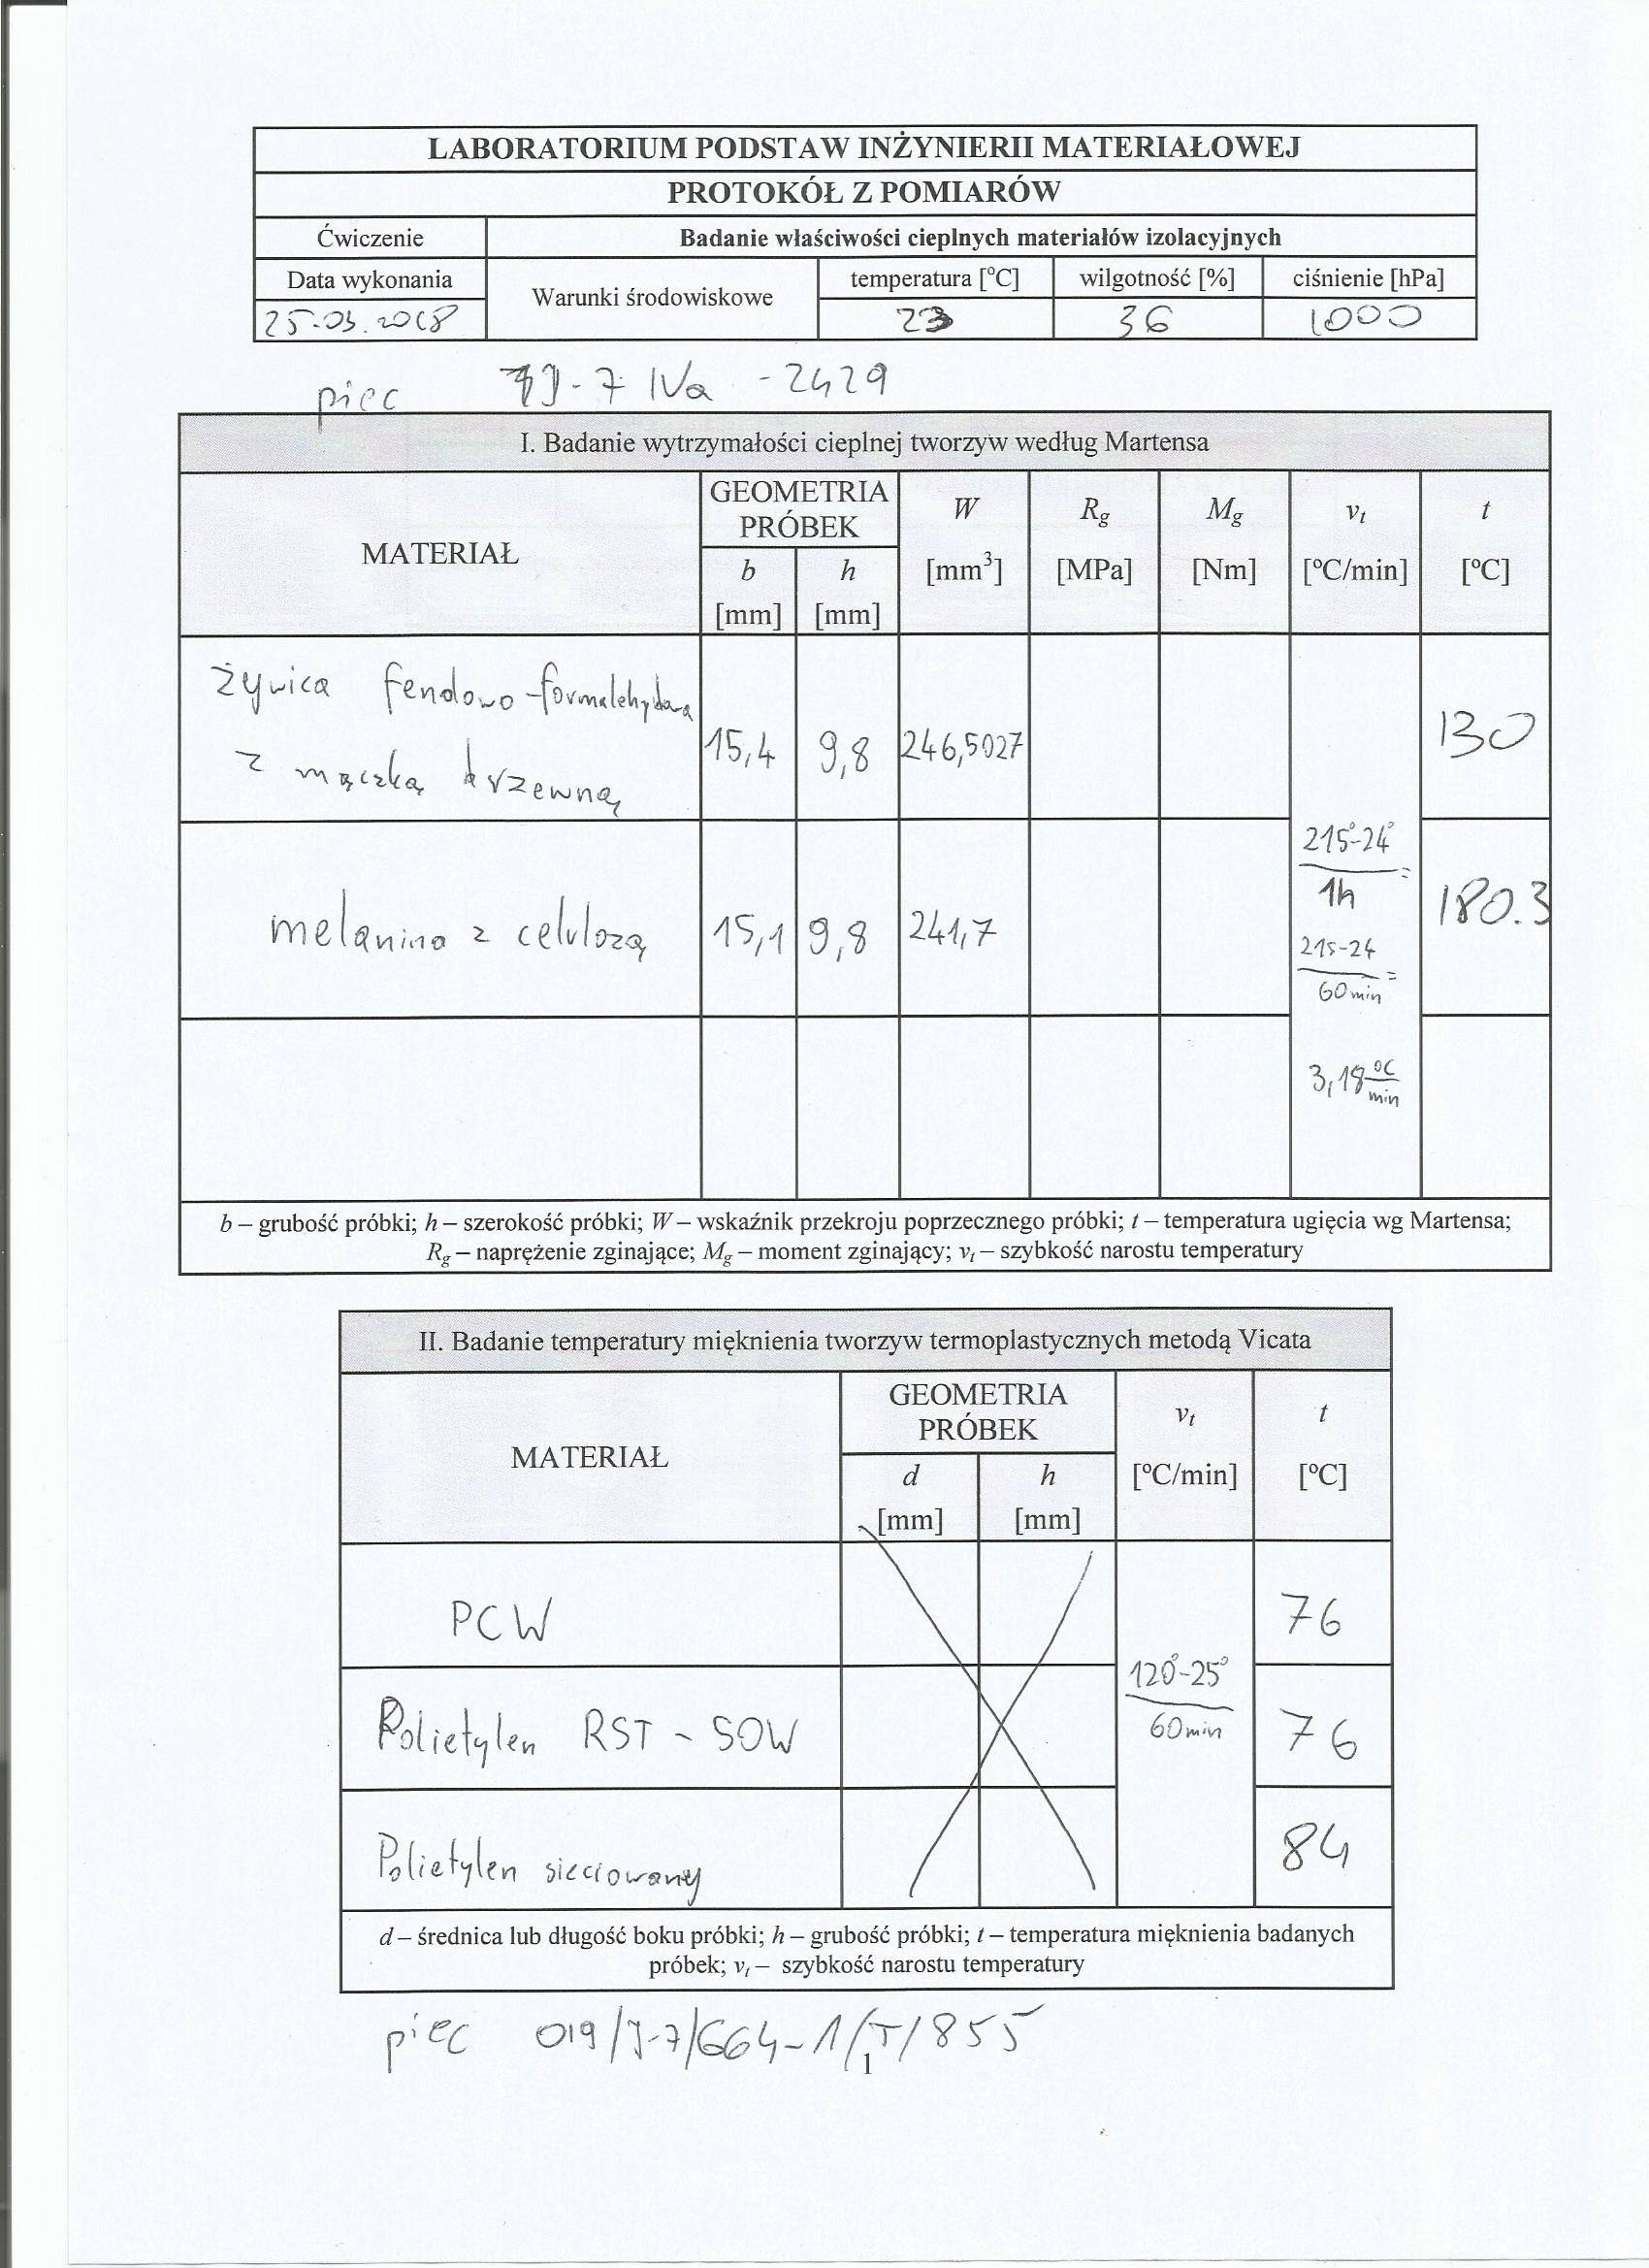 LABORATORIUM PODSTAW INŻYNIERII MATERIAŁOWEJ
PROTOKÓŁ Z POMIARÓW
Ćwiczenie Badanie właściwości cieplnych materiałów izolacyjnych
Data wykonania Warunki środowiskowe temperatura [°C] wilgotność [%] ciśnienie [hPa]
23 36 1000
piec IVa - 2429
I. Badanie wytrzymałości cieplnej tworzyw według Martensa
MATERIAŁ GEOMETRIA PRÓBEK W Rg Mg vt t
b h [mm³] [MPa] [Nm] [°C/min] [°C]
[mm] [mm]
żywica fenolowo-formalehydowa
z mączką drzewną 15,4 9,8 246,5027 130
melanina z celulozą 15,1 9,8 241,7 180.3
215°-24°
1h =
215-24
60min =
3,18 °C
min
b – grubość próbki; h – szerokość próbki; W – wskaźnik przekroju poprzecznego próbki; t – temperatura ugięcia wg Martensa;
Rg – naprężenie zginające; Mg – moment zginający; vt – szybkość narostu temperatury
II. Badanie temperatury mięknienia tworzyw termoplastycznych metodą Vicata
MATERIAŁ GEOMETRIA PRÓBEK vt t
d h [°C/min] [°C]
[mm] [mm]
PCW 76
120°-25°
60min
Polietylen RST - SOW 76
Polietylen sieciowany 84
d – średnica lub długość boku próbki; h – grubość próbki; t – temperatura mięknienia badanych
próbek; vt – szybkość narostu temperatury
piec 019/J-7/664-1/T/855
1